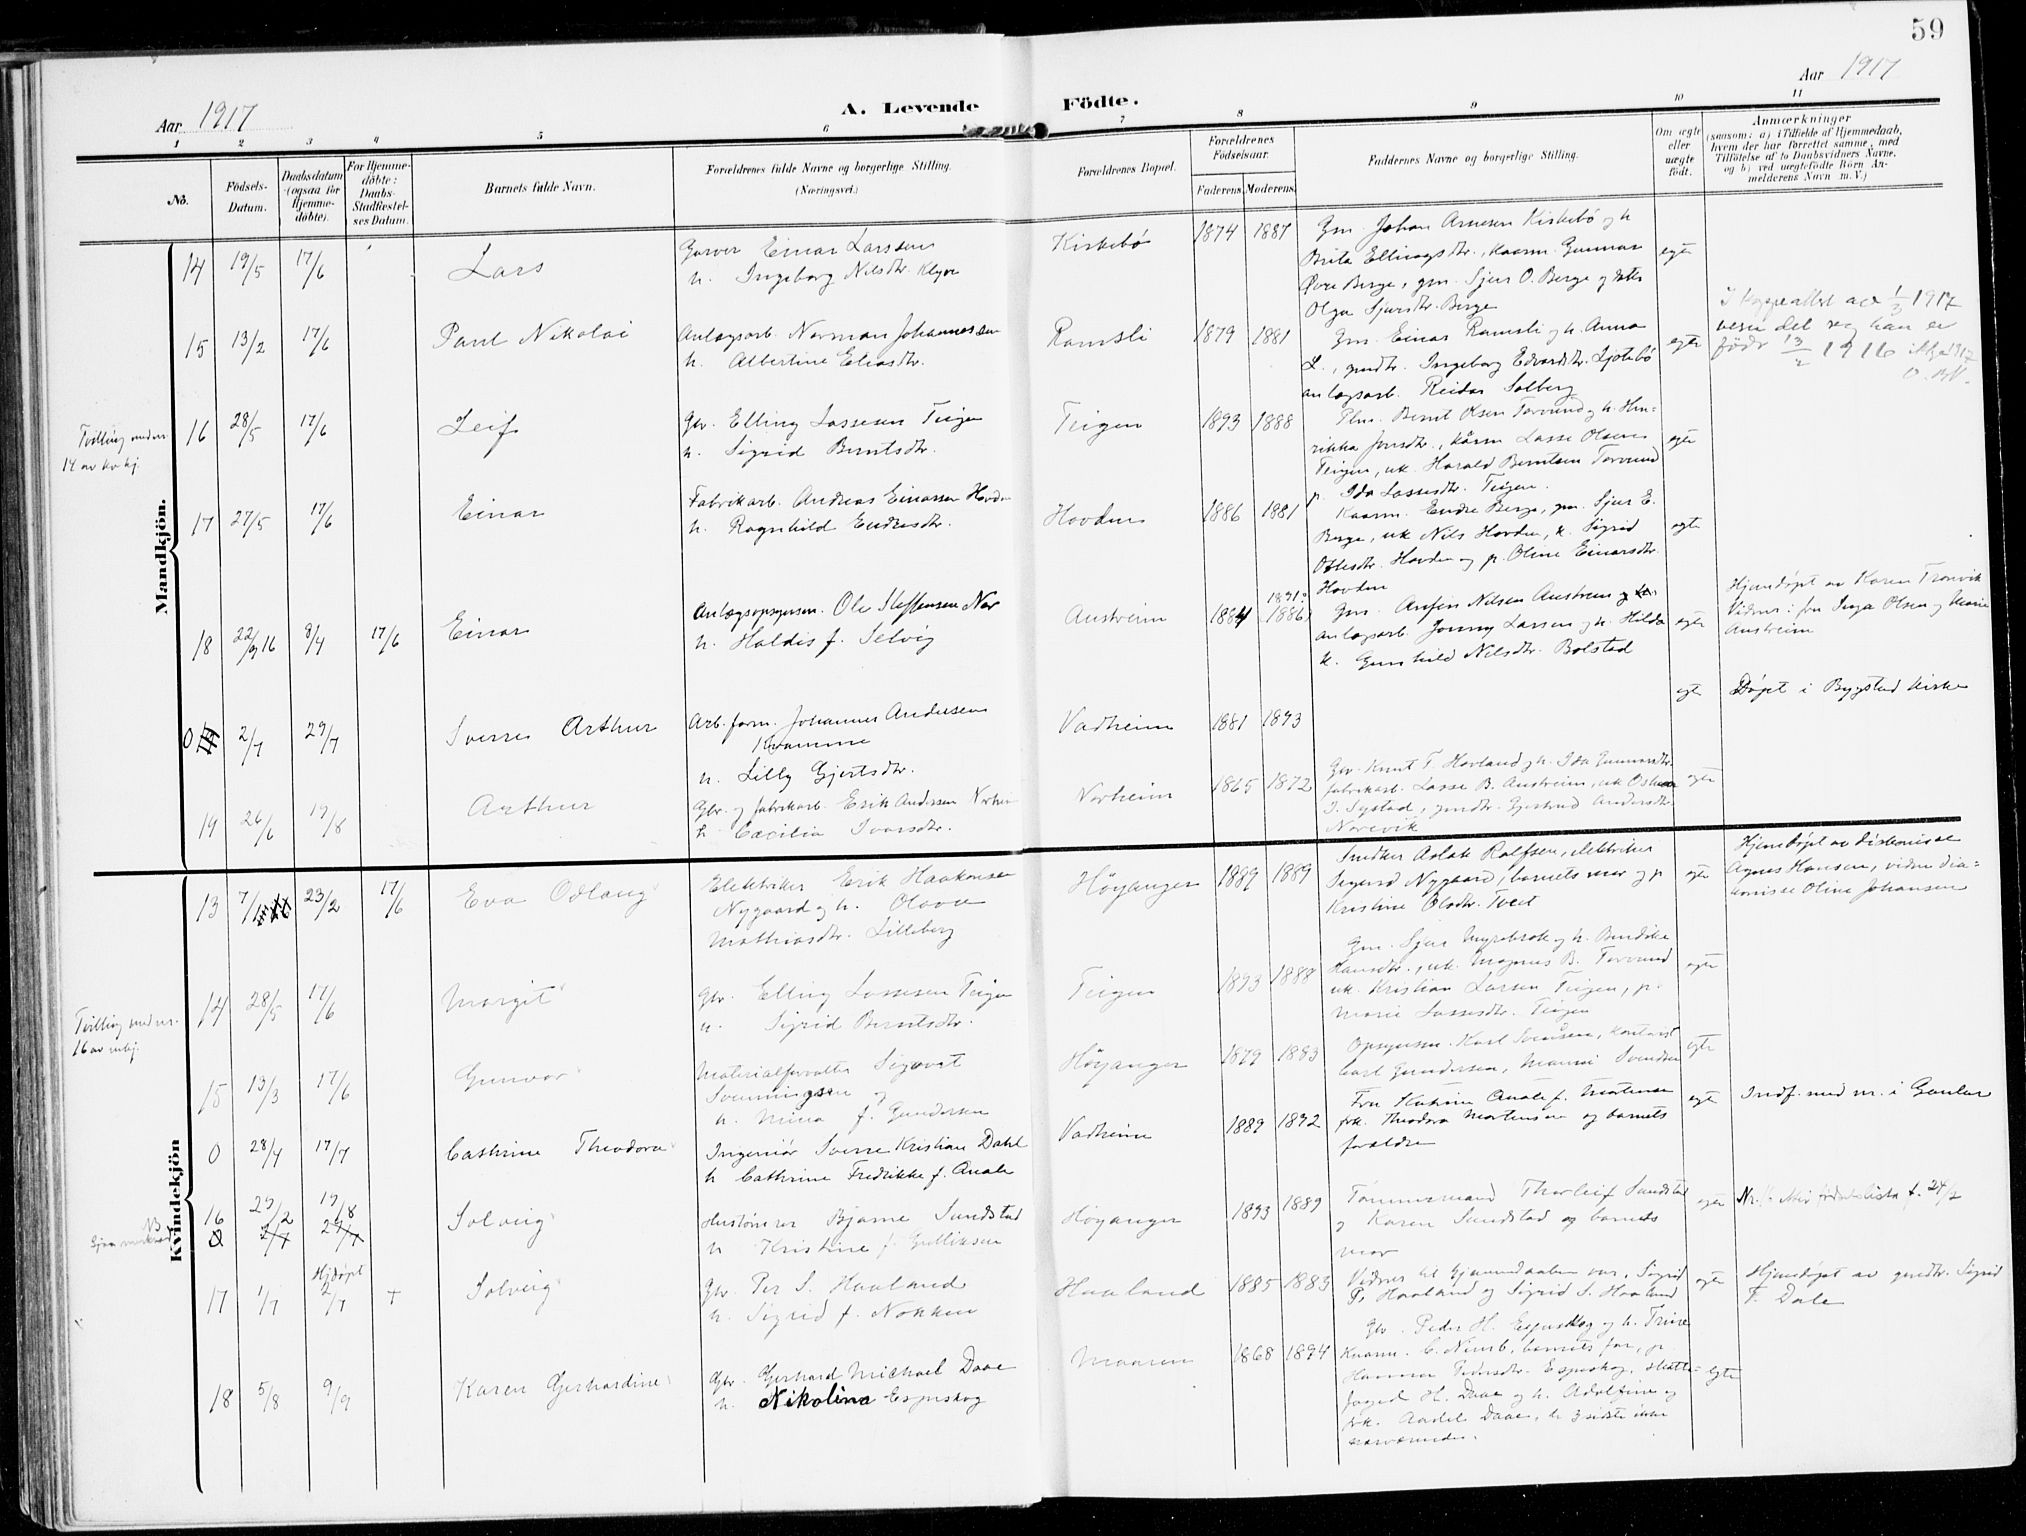 59
Aar 1917
A. Levende Födte.
Aar 1917
1 2 3 4 5 6 7 8 9 10 11
No.
Födsels-
Datum.
Daabsdatum
(ogsaa for
Hjemme-
döbte).
For Hjemme-
döbte:
Daabs-
Stadfæstel-
ses Datum.
Barnets fulde Navn.
Forældrenes fulde Navne og borgerlige Stilling.
(Næringsvei.)
Forældrenes Bopæl.
Forældrenes
Födselsaar.
Faderens. Moderens.
Faddernes Navne og borgerlige Stilling.
Om ægte
eller
uægte
födt.
Anmærkninger
(saasom: a) i Tilfælde af Hjemmedaab,
hvem der har forrettet samme, med
Tilföielse af to Daabsvidners Navne,
og b) ved uægtefödte Börn An-
melderens Navn m. V.)
Mandkjön.
14 19/5 17/6 Lars
Garver Einar Larssen
h. Ingeborg Nilsdtr. Klyve
Kirkebø 1874 1887
Gm. Johan Arnesen Kirkebø og h.
Brita Ellingsdtr., kaarm. Gunnar
Øvre Berge, gm. Sjur O. Berge og
Olga Sjursdtr. Berge
egte
15 13/2 17/6 Paul Nikolai
Anlægsarb. Norman Johannessen
h. Albertine Eliasdtr.
Ramsli 1879 1881
Gm. Einar Ramsli og h. Anna
L., gmdtr. Ingeborg Edvardsdtr. Ljotebø
anlægsarb. Reidar Solberg
egte
1/3 1917
viser det seg han er
født 13/2 1916 ikkje 1917
Tvilling med nr.
14 av kv.kj.
16 28/5 17/6 Leif
Gbr. Elling Lassesen Teigen
h. Sigrid Berntsdtr.
Teigen 1893 1888
Plm. Bernt Olsen Torvund og h. Hen-
rikka Jonsdtr., kårm. Lasse Olsen
Teigen, uk. Harald Berntsen Torvund
p. Ida Lassesdtr. Teigen.
egte
17 27/5 17/6 Einar
Fabrikarb. Andreas Einarsen Hovden
h. Ragnhild Endresdtr.
Hovden 1886 1881
Kaarm. Endre Berge, gm. Sjur E.
Berge, uk. Nils Hovden, k. Sigrid
Ottesdtr. Hovden og p. Oline Einarsdtr.
Hovden
egte
18 22/9 16 8/4 17/6 Einar
Anlægsopsynsm. Ole Steffensen Nor
h. Haldis f. Selvig
Austreim 1884 1886
1891:
Gm. Anfin Nilsen Austreim og
anlægsarb. Jonny Larsen og h. Hilda
k. Gunhild Nilsdtr. Bolstad
egte
Hjemdøpt av Karen Tronvik
Vidner: fru Inga Olsen og Marie
Austreim
0 2/7 29/7 Sverre Arthur
Arb.form. Johannes Andersen
Kvamme
h. Lilly Gjertsdtr.
Vadheim 1881 1893
egte
Døpt i Bygstad kirke
19 26/6 19/8 Arthur
Gbr. og fabrikarb. Erik Andersen Norheim
h. Cæcilia Ivarsdtr.
Norheim 1865 1872
Gbr. Knut T. Hovland og h. Ida Gunnarsdtr.
fabrikarb. Lasse B. Austreim, uk. Oskar
I. Systad, gmdtr. Gjertrud Andersdtr.
Norevik
egte
Kvindekjön
13 7/1 23/2 17/6 Eva Odlaug
Elektriker Erik Haakonsen
Nygaard og h. Olava
Mathiasdtr. Lilleberg
Höyanger 1889 1889
Snedker Aslak Rolfsen, elektriker
Sigurd Nygaard, barnets mor og p.
Kristine Olsdtr. Tveit
egte
Hjemdøpt av diakonisse
Agnes Hansen, vidne dia-
konisse Oline Johansen
Tvilling med nr.
16 av mkj.
14 28/5 17/6 Margit
Gbr. Elling Lassesen Teigen
h. Sigrid Berntsdtr.
Teigen 1893 1888
Gm. Sjur Myrebrok og h. Bendike
Hansdtr., uk. Magnus B. Torvund
uk. Kristian Larsen Teigen, p.
Marie Lassesdtr. Teigen
egte
15 13/3 17/6 Gunvor
Materialforvalter Sigvart
Svenningsen og
h. Mina f. Gundersen
Höyanger 1879 1883
Opsynsm. Karl Svensen, kontorist
Carl Gundersen, Svendsen
egte
0 28/4 17/7 Cathrine Theodora
Ingeniør Sverre Kristian Dahl
h. Cathrine Fredrikke f. Anale
Vadheim 1889 1892
Fru Katrine Anale f. Mortensen
frk. Theodora Mortensen og barnets
forældre
egte
Indf. med nr. i Gaular
NB
16 29/2 19/8 Solveig
0 2/7 29/7
Bjarne Sundstad
h. Kristine f. Gulliksen
Höyanger 1893 1889
Tømmermand Thorleif Sundstad
og Karen Sundstad og barnets
mor
egte
17 1/7 Hjdøpt 2/7 + Solveig
Gbr. Per S. Haaland
h. Sigrid f. Nokken
Haaland 1885 1883
Vidner til hjemmedaaben var, Sigrid
P. Haaland og Sigrid S. Haaland
egte
Hjemdøpt av gmdtr. Sigrid
T. Dale
18 5/8 9/9 Karen Gerhardine
Gbr. Gerhard Michael Daae
h. Nikolina Espeskog
Maaren 1868 1894
Gbr. Peder H. Espeskog og h. Trine
Kaarm. C. Nimb, barnets far, p.
Hanna Pedersdtr. Espeskog, skatte-
foged H. Daae og h. Adolfine og
frk. Aadel Daae, de 3 sidste ikke
nærværende.
egte